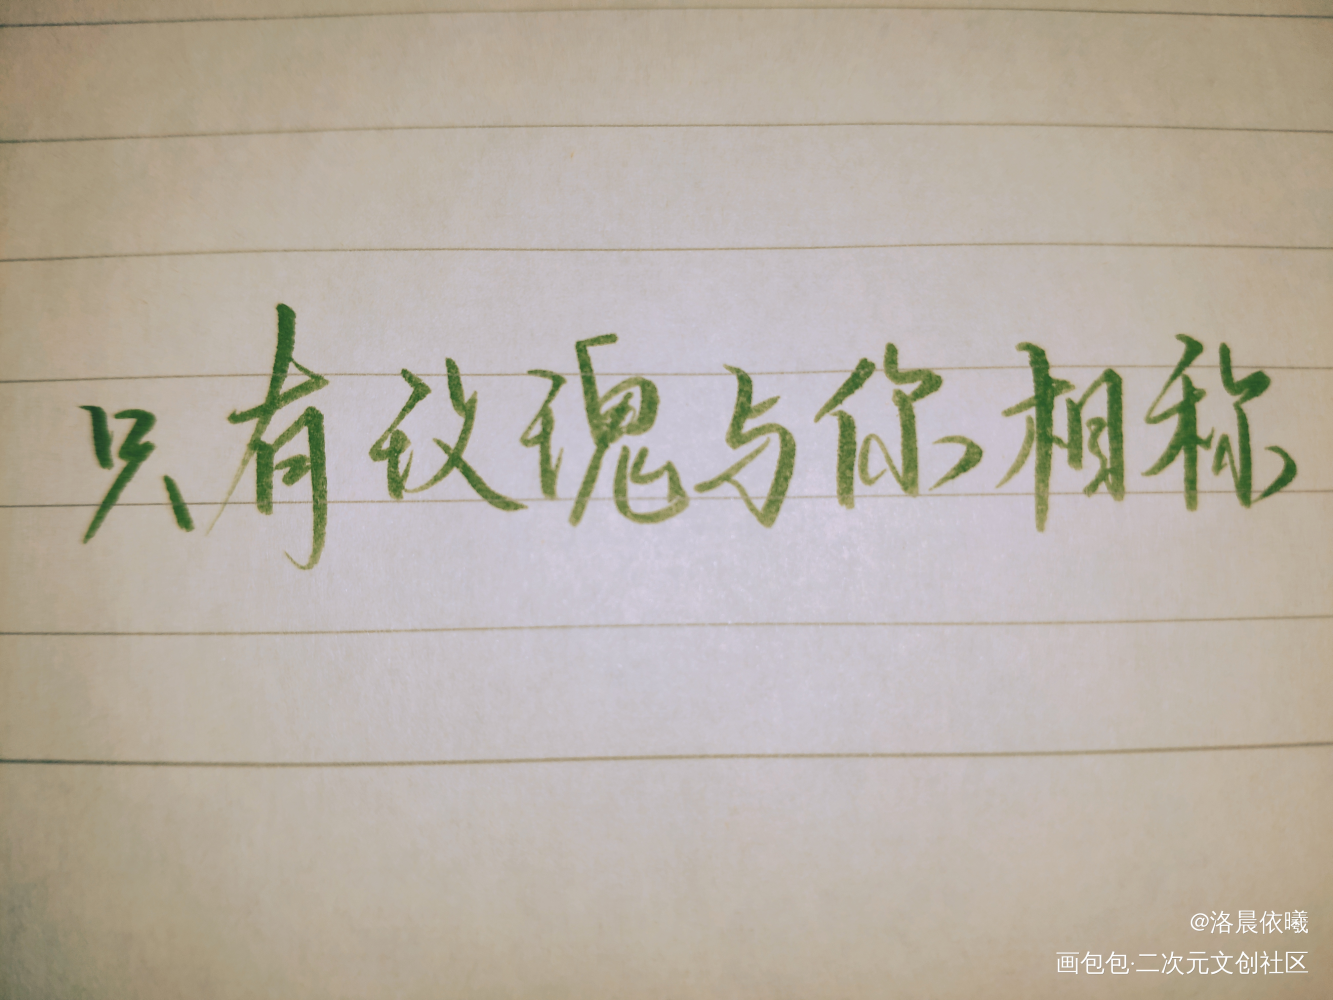 只有玫瑰与你相称
@洛晨依曦
画包包·二次元文创社区